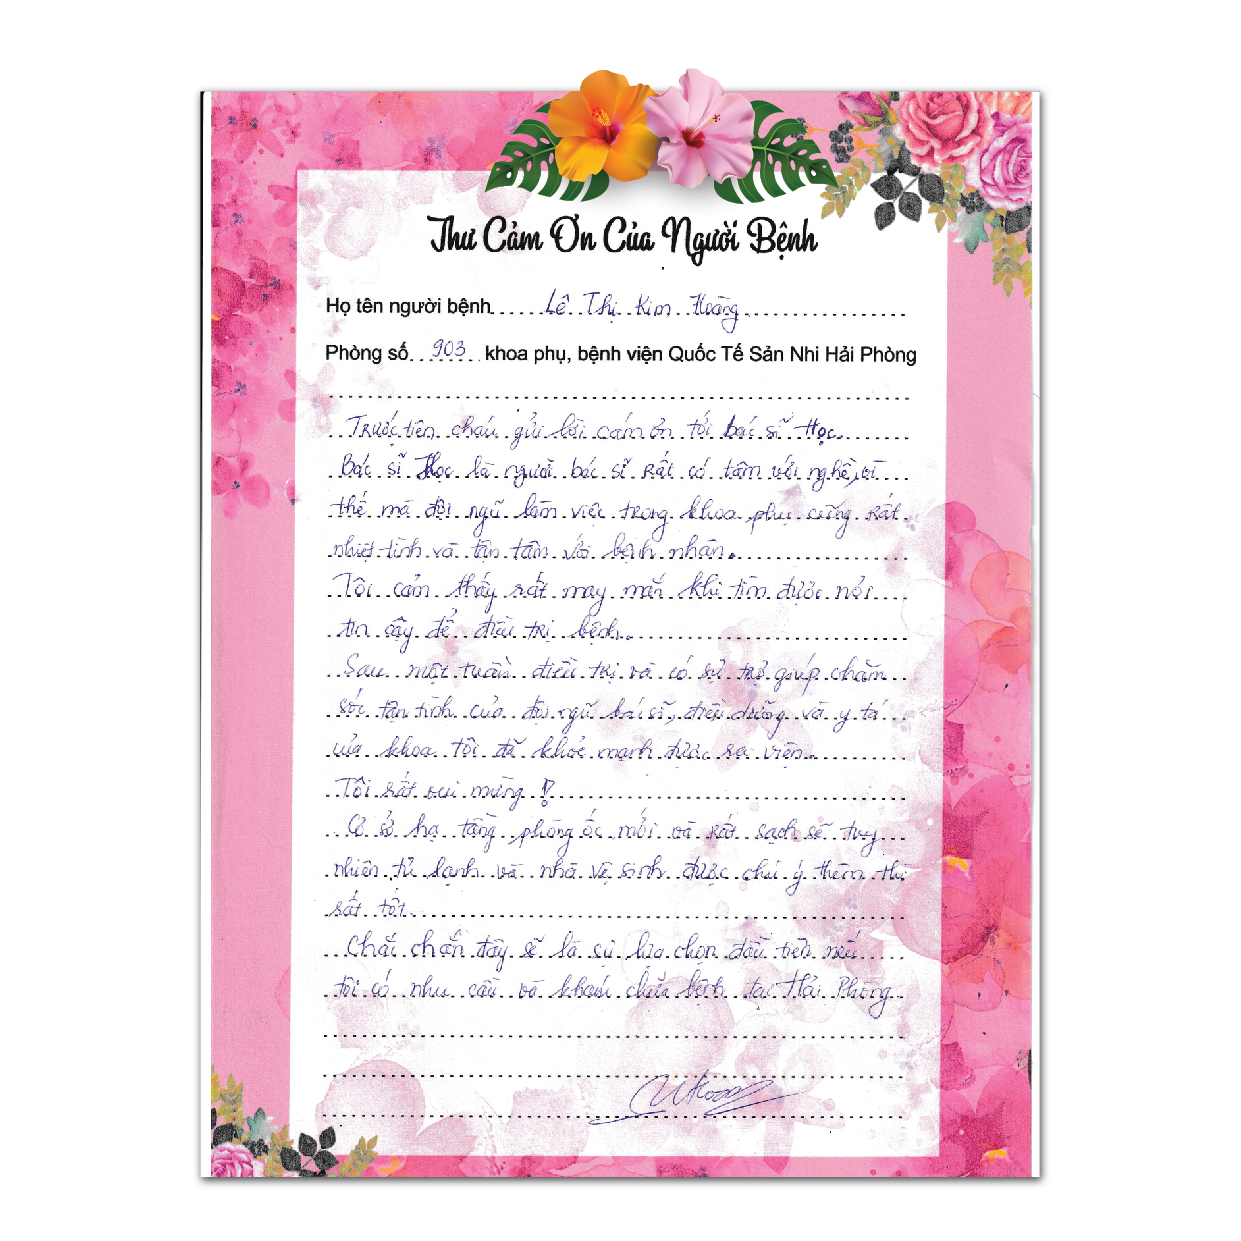 Thư Cảm Ơn Của Người Bệnh
Họ tên người bệnh.....Lê Thị Kim Hoàng................
Phòng số...903...khoa phụ, bệnh viện Quốc Tế Sản Nhi Hải Phòng
Trước tiên cháu gửi lời cám ơn tới bác sĩ Học.
Bác sĩ Học là người bác sĩ rất có tâm với nghề, vì
thế mà đội ngũ làm việc trong khoa phụ cũng rất
nhiệt tình và tận tâm với bệnh nhân.
Tôi cảm thấy rất may mắn khi tìm được nơi
tin cậy để điều trị bệnh.
Sau một tuần điều trị và có sự trợ giúp chăm
sóc tận tình của đội ngũ bác sĩ, điều dưỡng và y tá
của khoa tôi đã khỏe mạnh được ra viện.
Tôi rất vui mừng !
Cơ sở hạ tầng phòng ốc mới và rất sạch sẽ tuy
nhiên tủ lạnh và nhà vệ sinh được chú ý thêm thì
rất tốt.
Chắc chắn đây sẽ là sự lựa chọn đầu tiên nếu
tôi có nhu cầu và khám chữa bệnh tại Hải Phòng